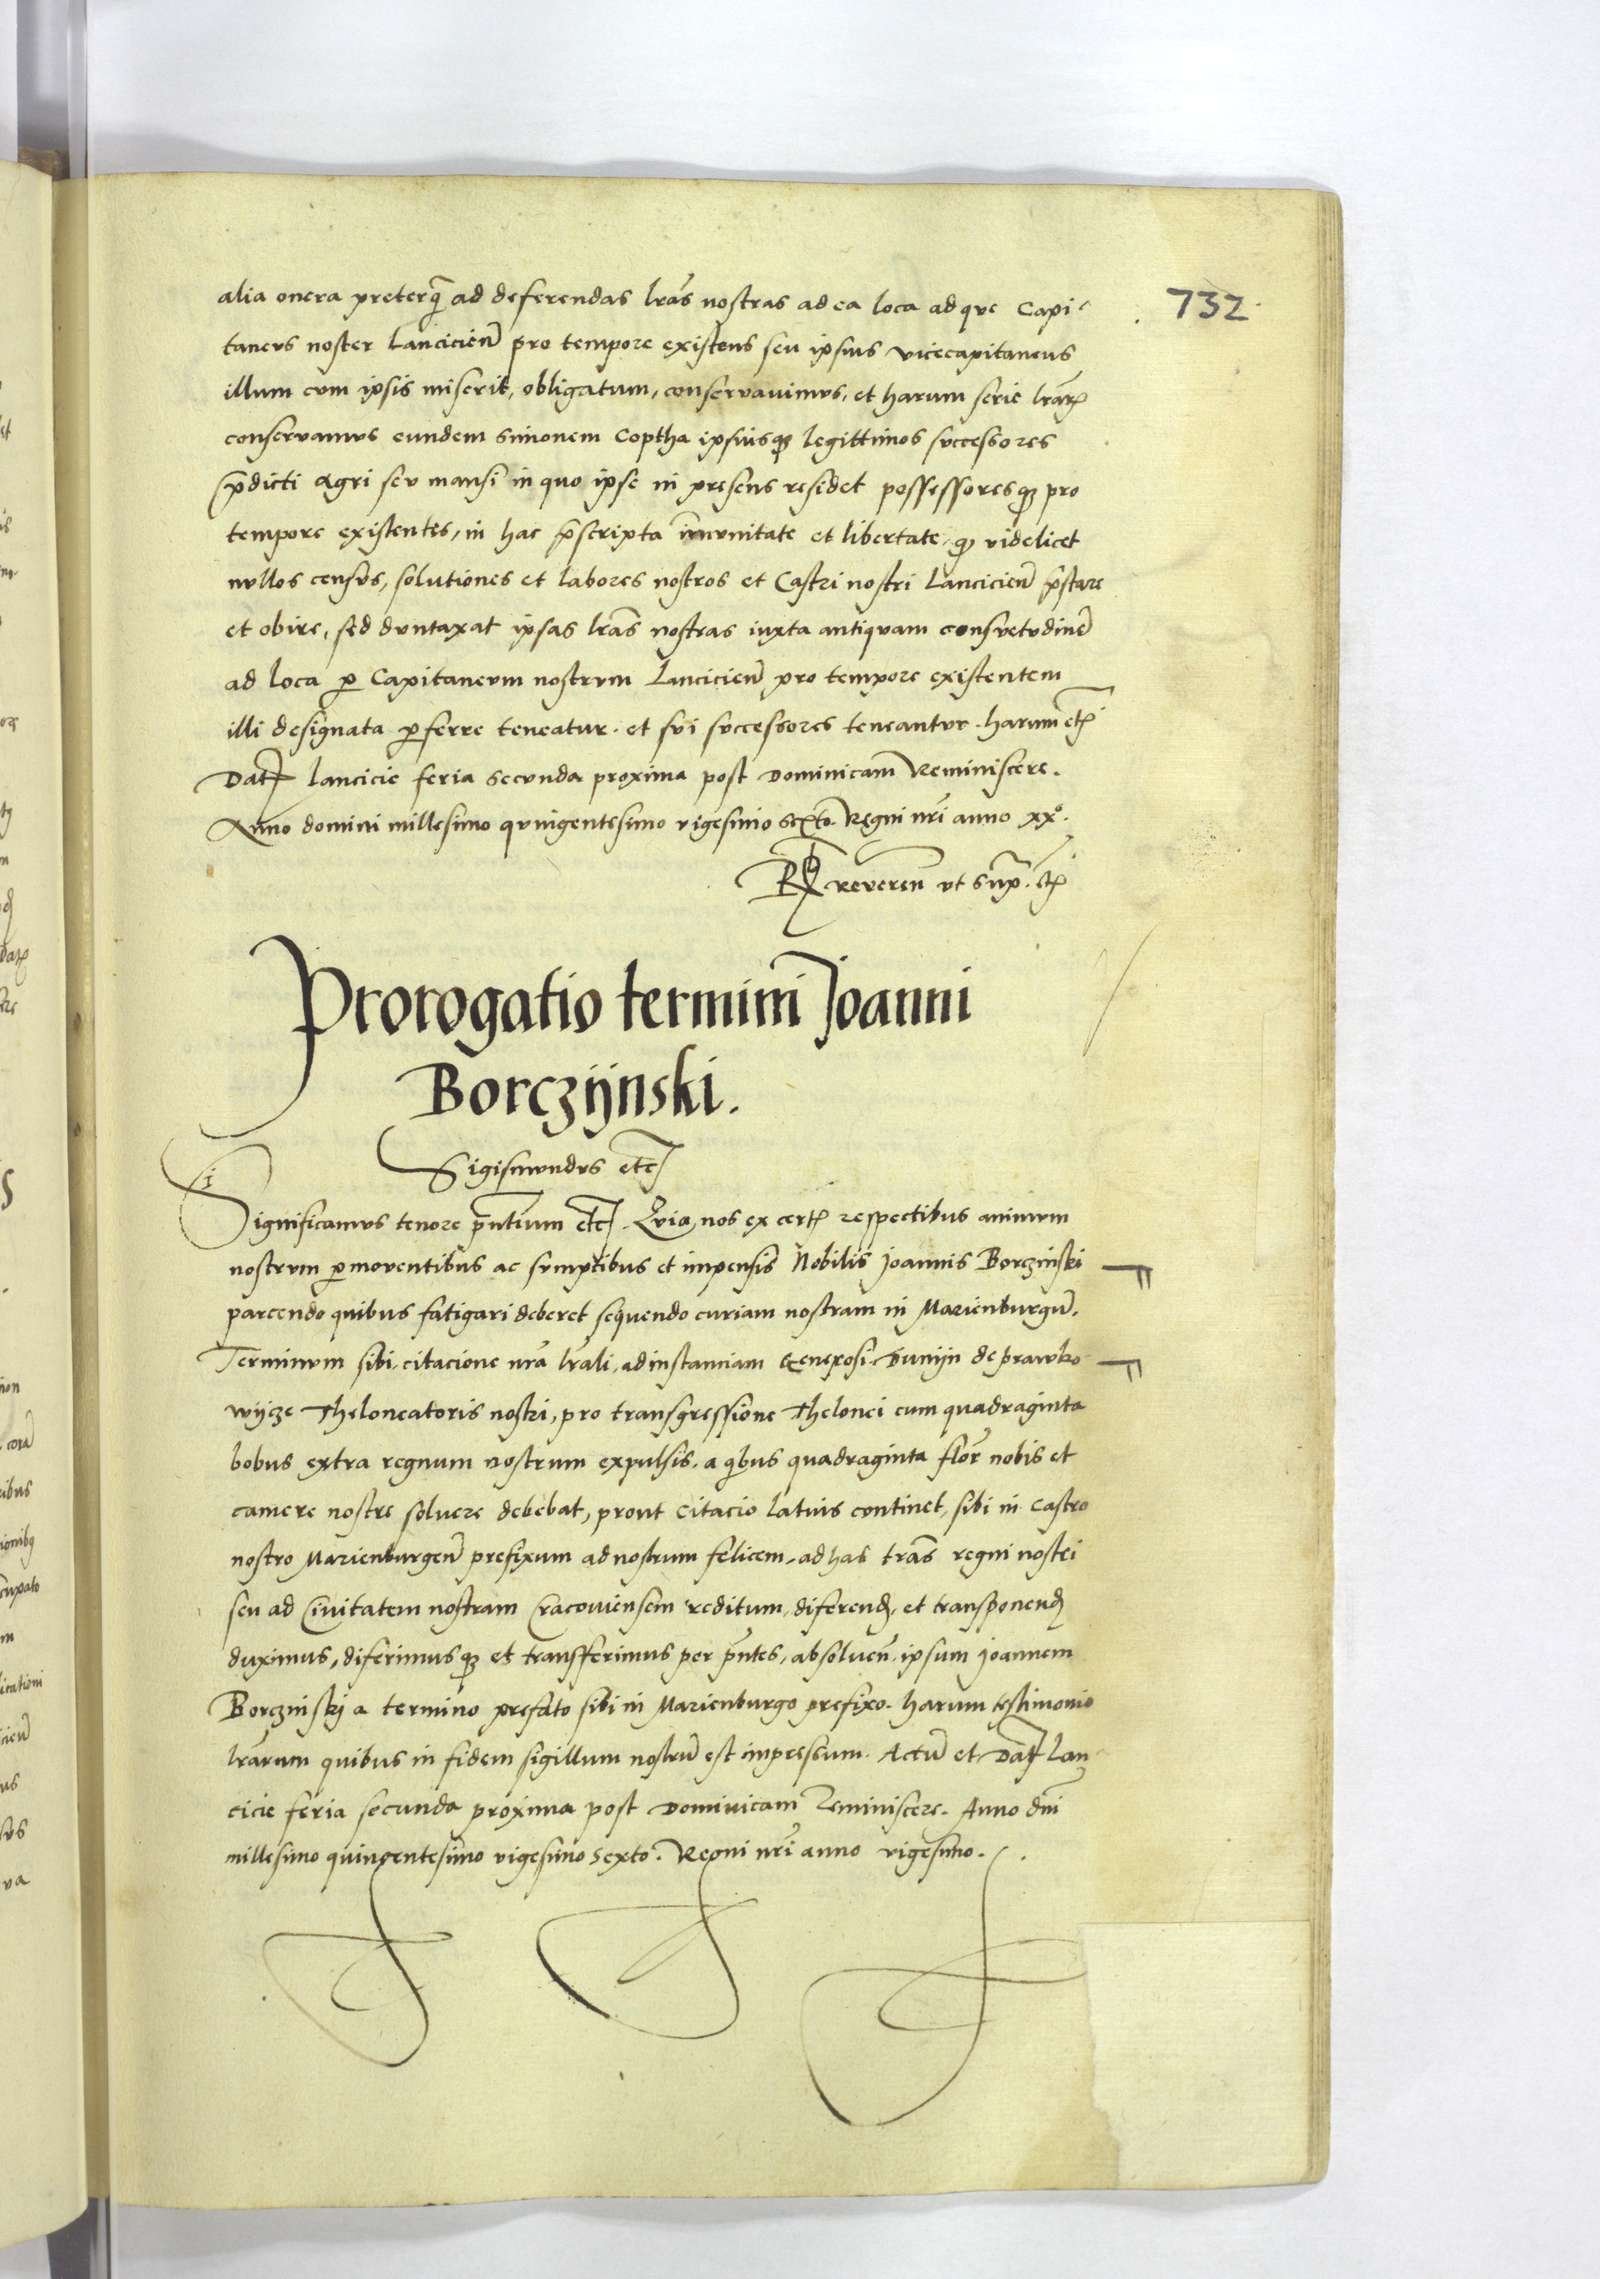 732
alia onera preterq̃ ad deferendas lrãs nostras ad ea loca ad que Capi
taneus noster Lancicien̄ pro tempore existens seu ipsius vicecapitaneus
illum cum ipsis miserit, obligatum, conservavimus, et harum serie lrãr̨
conservamus eundem Simonem Coptha ipsiusq̨ legittimos successores
p̄dicti Agri seu mansi in quo ipse in presens residet possessoresq̨ pro
tempore existentes, in hac p̄scripta im̄unitate et libertate, q̨ videlicet
nullos census, solutiones et labores nostros et Castri nostri Lancicien̄ p̄stare
et obire, sed duntaxat ipsas lrãs nostras iuxta antiquam consuetudinē
ad loca p̱ Capitaneum nostrum Lancicien̄ pro tempore existentem
illi designata p̱ferre teneatur. et sui successores teneantur. harum etc̨
Dat̄ Lancicie feria secunda proxima post Dominicam Reminiscere.
Anno domini millesimo quingentesimo vigesimo sexto. Regni nr̄i anno xx°.
Rx reveren̄ ut sup̄. etc̨
Prorogatio termini Joanni
Borczijnski.
Sigismundus etc̄
Significamus tenore p̄ntium etc̄. Quia nos ex cert̨ respectibus animum
nostrum p̱moventibus ac sumptibus et impensis Nobilis Joannis Borczinski
parcendo quibus fatigari deberet sequendo curiam nostram in Marienburgū.
Terminum sibi, citacione nrã lr̄ali, ad instanciam Generosi. Dunijn de prawko
wijcze Theloneatoris nostri, pro transgressione Thelonei cum quadraginta
bobus extra regnum nostrum expulsis. a q̄bus quadraginta flor̄ nobis et
camere nostre solvere debebat, prout citacio latius continet, sibi in Castro
nostro Marienburgen̄ prefixum ad nostrum felicem, ad has trãs regni nostri
seu ad Civitatem nostram Cracoviensem reditum, diferend̨, et transponend̨
duximus, diferimusq̨ et transferimus per p̄ntes, absolven̄ ipsum Joannem
Borczinskj a termino prefato sibi in Marienburgo prefixo. harum testimonio
lrãrum quibus in fidem sigillum nostrū est impressum. Actū et Dat̄ Lan
cicie feria secunda proxima post Dominicam Reminiscere. Anno dn̄i
millesimo quingentesimo vigesimo sexto. Regni nr̄i anno vigesimo.